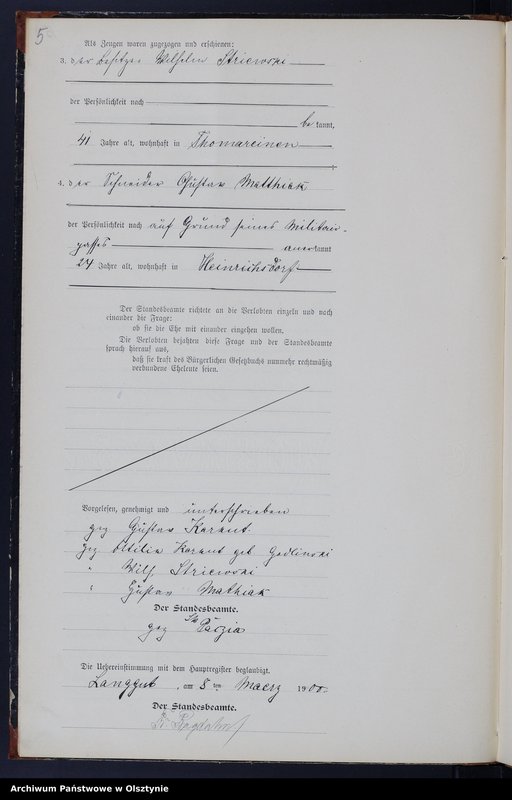 5
Als Zeugen waren zugezogen und erschienen:
3. der Besitzer Wilhelm Striewski
der Persönlichkeit nach
be kannt,
41 Jahre alt, wohnhaft in Thomareinen
4. der Schneider Gustav Matthiak
der Persönlichkeit nach auf Grund seines Militair-
passes anerkannt
24 Jahre alt, wohnhaft in Heinrichsdorf
Der Standesbeamte richtete an die Verlobten einzeln und nach
einander die Frage:
ob sie die Ehe mit einander eingehen wollen.
Die Verlobten bejahten diese Frage und der Standesbeamte
sprach hierauf aus,
daß sie kraft des Bürgerlichen Gesetzbuchs nunmehr rechtmäßig
verbundene Eheleute seien.
Vorgelesen, genehmigt und unterschrieben
gez Gustav Karant.
gez Ottilie Karant geb Godlinski
" Wilh. Striewski
" Gustav Mathiak
Der Standesbeamte.
gez
Die Uebereinstimmung mit dem Hauptregister beglaubigt.
Langgut, am 8 ten Maerz 1900.
Der Standesbeamte.
Archiwum Państwowe w Olsztynie